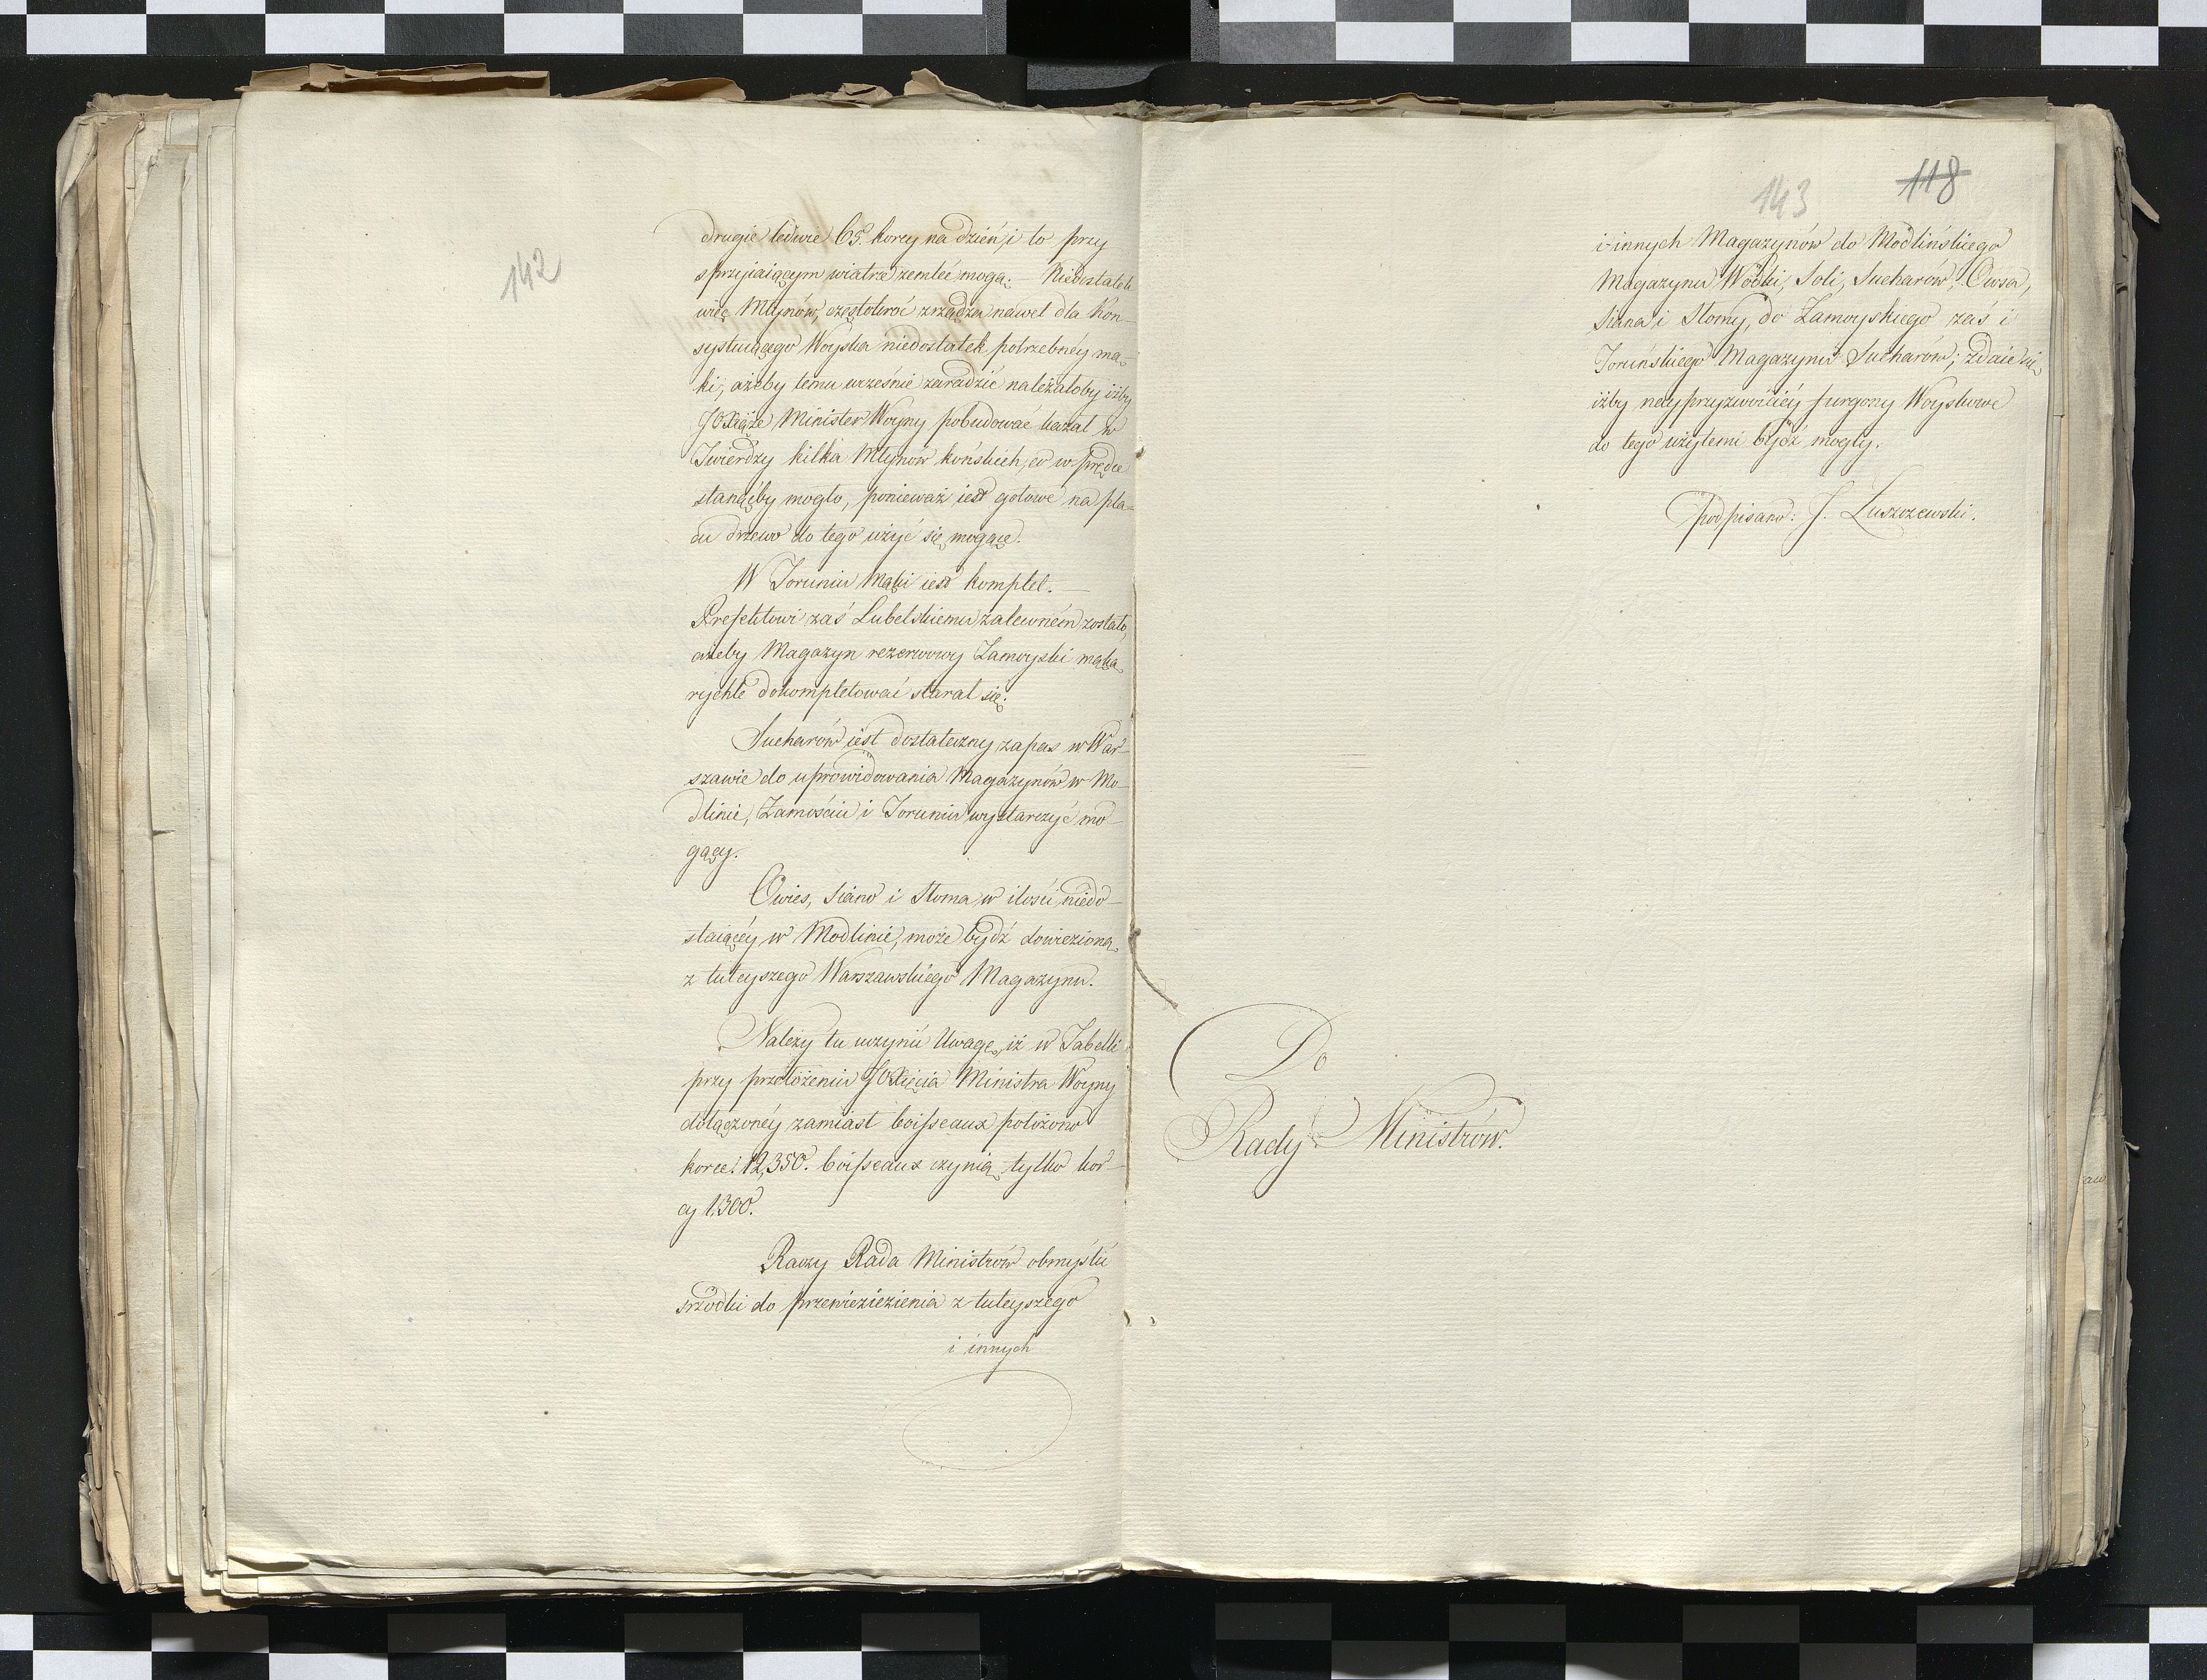 142
drugie ledwie 65. korcy na dzień, i to przy
sprzyiaiącym wiatrze zemleć mogą. – Niedostatek
więc Młynów, częstokroć zrządza nawet dla kon-
systuiącego Woyska niedostatek potrzebnéy mą-
ki, ażeby temu wcześnie zaradzić należałoby iżby
JOXiąże Minister Woyny pobudować kazał w
Twierdzy kilka Młynów końskich, co wprędce
stanąćby mogło, ponieważ iest gotowe na pla-
cu drzewo do tego użyć się mogące.
W Toruniu Mąki iest komplet. –
Prefektowi zaś Lubelskiemu zaleconém zostało,
ażeby Magazyn rezerwowy Zamoyski mąką
rychle dokompletować starał się.
Sucharów iest dostateczny zapas w War-
szawie do uprowidowania Magazynów w Mo-
dlinie, Zamościu i Toruniu wystarczyć mo-
gący.
Owies, Siano i Słoma w ilości niedo-
staiącéy w Modlinie, może bydź dowiezioną
z tuteyszego Warszawskiego Magazynu.
Należy tu uczynić Uwagę, iż w Tabelli
przy przełożeniu JOXięcia Ministra Woyny
dołączonéy zamiast boisseaux położono
korce! 12,350. boisseaux czynią tylko kor-
cy 1300.
Raczy Rada Ministrów obmyślić
srzodki do przewieziezienia z tuteyszego
i innych
143 118
i innych Magazynów do Modlińskiego
Magazynu Wódki, Soli, Sucharów, Owsa,
Siana i Słomy, do Zamoyskiego zaś i
Toruńskiego Magazynu Sucharów; zdaie się,
iżby nayprzyzwoiciéy furgony Woyskowe
do tego użytemi bydź mogły.
Podpisano: J. Łuszczewski.
Do
Rady Ministrów.